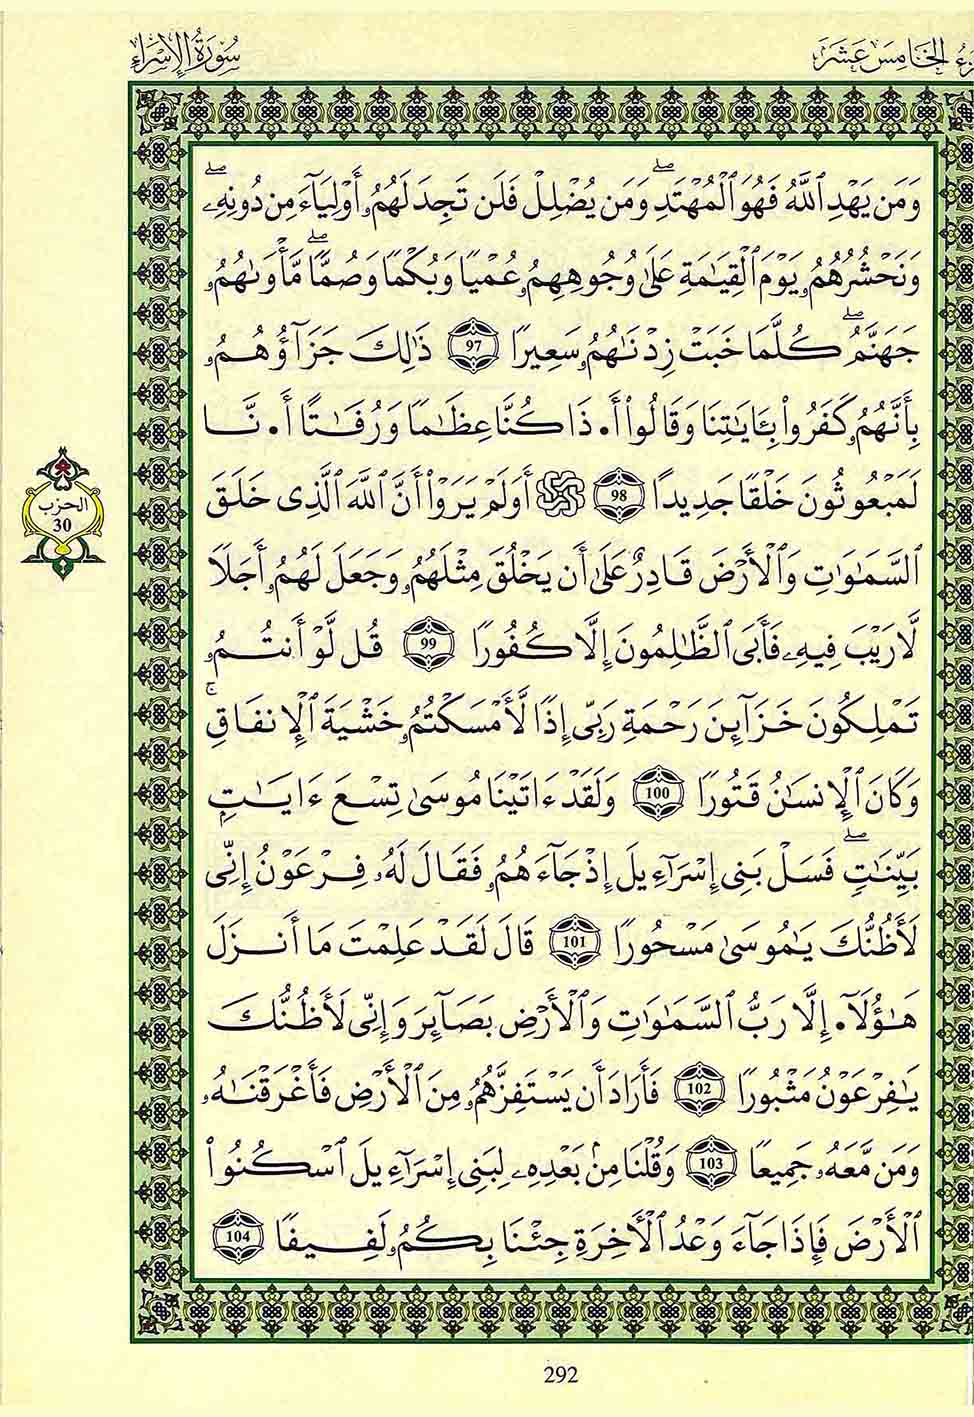 الجزء الخامس عشر
سورة الإسراء
وَمَن يَهْدِ ٱللَّهُ فَهُوَ ٱلْمُهْتَدِۖ وَمَن يُضْلِلْ فَلَن تَجِدَ لَهُمُۥٓ أَوْلِيَآءَ مِن دُونِهِۦۖ
وَنَحْشُرُهُمُۥ يَوْمَ ٱلْقِيَٰمَةِ عَلَىٰ وُجُوهِهِمُۥ عُمْيًا وَبُكْمًا وَصُمًّاۖ مَّأْوَىٰهُمُۥ
جَهَنَّمُۖ كُلَّمَا خَبَتْ زِدْنَٰهُمُۥ سَعِيرًا 97 ذَٰلِكَ جَزَآؤُهُمُۥ
بِأَنَّهُمُۥ كَفَرُوا۟ بِـَٔايَٰتِنَا وَقَالُوٓا۟ أَ.ذَا كُنَّا عِظَٰمًا وَرُفَٰتًا أَ.نَّا
لَمَبْعُوثُونَ خَلْقًا جَدِيدًا 98 أَوَلَمْ يَرَوْا۟ أَنَّ ٱللَّهَ ٱلَّذِى خَلَقَ
ٱلسَّمَٰوَٰتِ وَٱلْأَرْضَ قَادِرٌ عَلَىٰٓ أَن يَخْلُقَ مِثْلَهُمُۥ وَجَعَلَ لَهُمُۥٓ أَجَلًا
لَّا رَيْبَ فِيهِۦ فَأَبَى ٱلظَّٰلِمُونَ إِلَّا كُفُورًا 99 قُل لَّوْ أَنتُمُۥ
تَمْلِكُونَ خَزَآئِنَ رَحْمَةِ رَبِّى إِذًا لَّأَمْسَكْتُمُۥ خَشْيَةَ ٱلْإِنفَاقِۚ
وَكَانَ ٱلْإِنسَٰنُ قَتُورًا 100 وَلَقَدْ ءَاتَيْنَا مُوسَىٰ تِسْعَ ءَايَٰتٍۭ
بَيِّنَٰتٍۖ فَسَلْ بَنِىٓ إِسْرَآءِيلَ إِذْ جَآءَهُمُۥ فَقَالَ لَهُۥ فِرْعَوْنُ إِنِّى
لَأَظُنُّكَ يَٰمُوسَىٰ مَسْحُورًا 101 قَالَ لَقَدْ عَلِمْتَ مَآ أَنزَلَ
هَٰٓؤُلَآ. إِلَّا رَبُّ ٱلسَّمَٰوَٰتِ وَٱلْأَرْضِ بَصَآئِرَ وَإِنِّى لَأَظُنُّكَ
يَٰفِرْعَوْنُ مَثْبُورًا 102 فَأَرَادَ أَن يَسْتَفِزَّهُمُۥ مِنَ ٱلْأَرْضِ فَأَغْرَقْنَٰهُۥ
وَمَن مَّعَهُۥ جَمِيعًا 103 وَقُلْنَا مِنۢ بَعْدِهِۦ لِبَنِىٓ إِسْرَآءِيلَ ٱسْكُنُوا۟
ٱلْأَرْضَ فَإِذَا جَآءَ وَعْدُ ٱلْأَخِرَةِ جِئْنَا بِكُمُۥ لَفِيفًا 104
الحزب
30
292